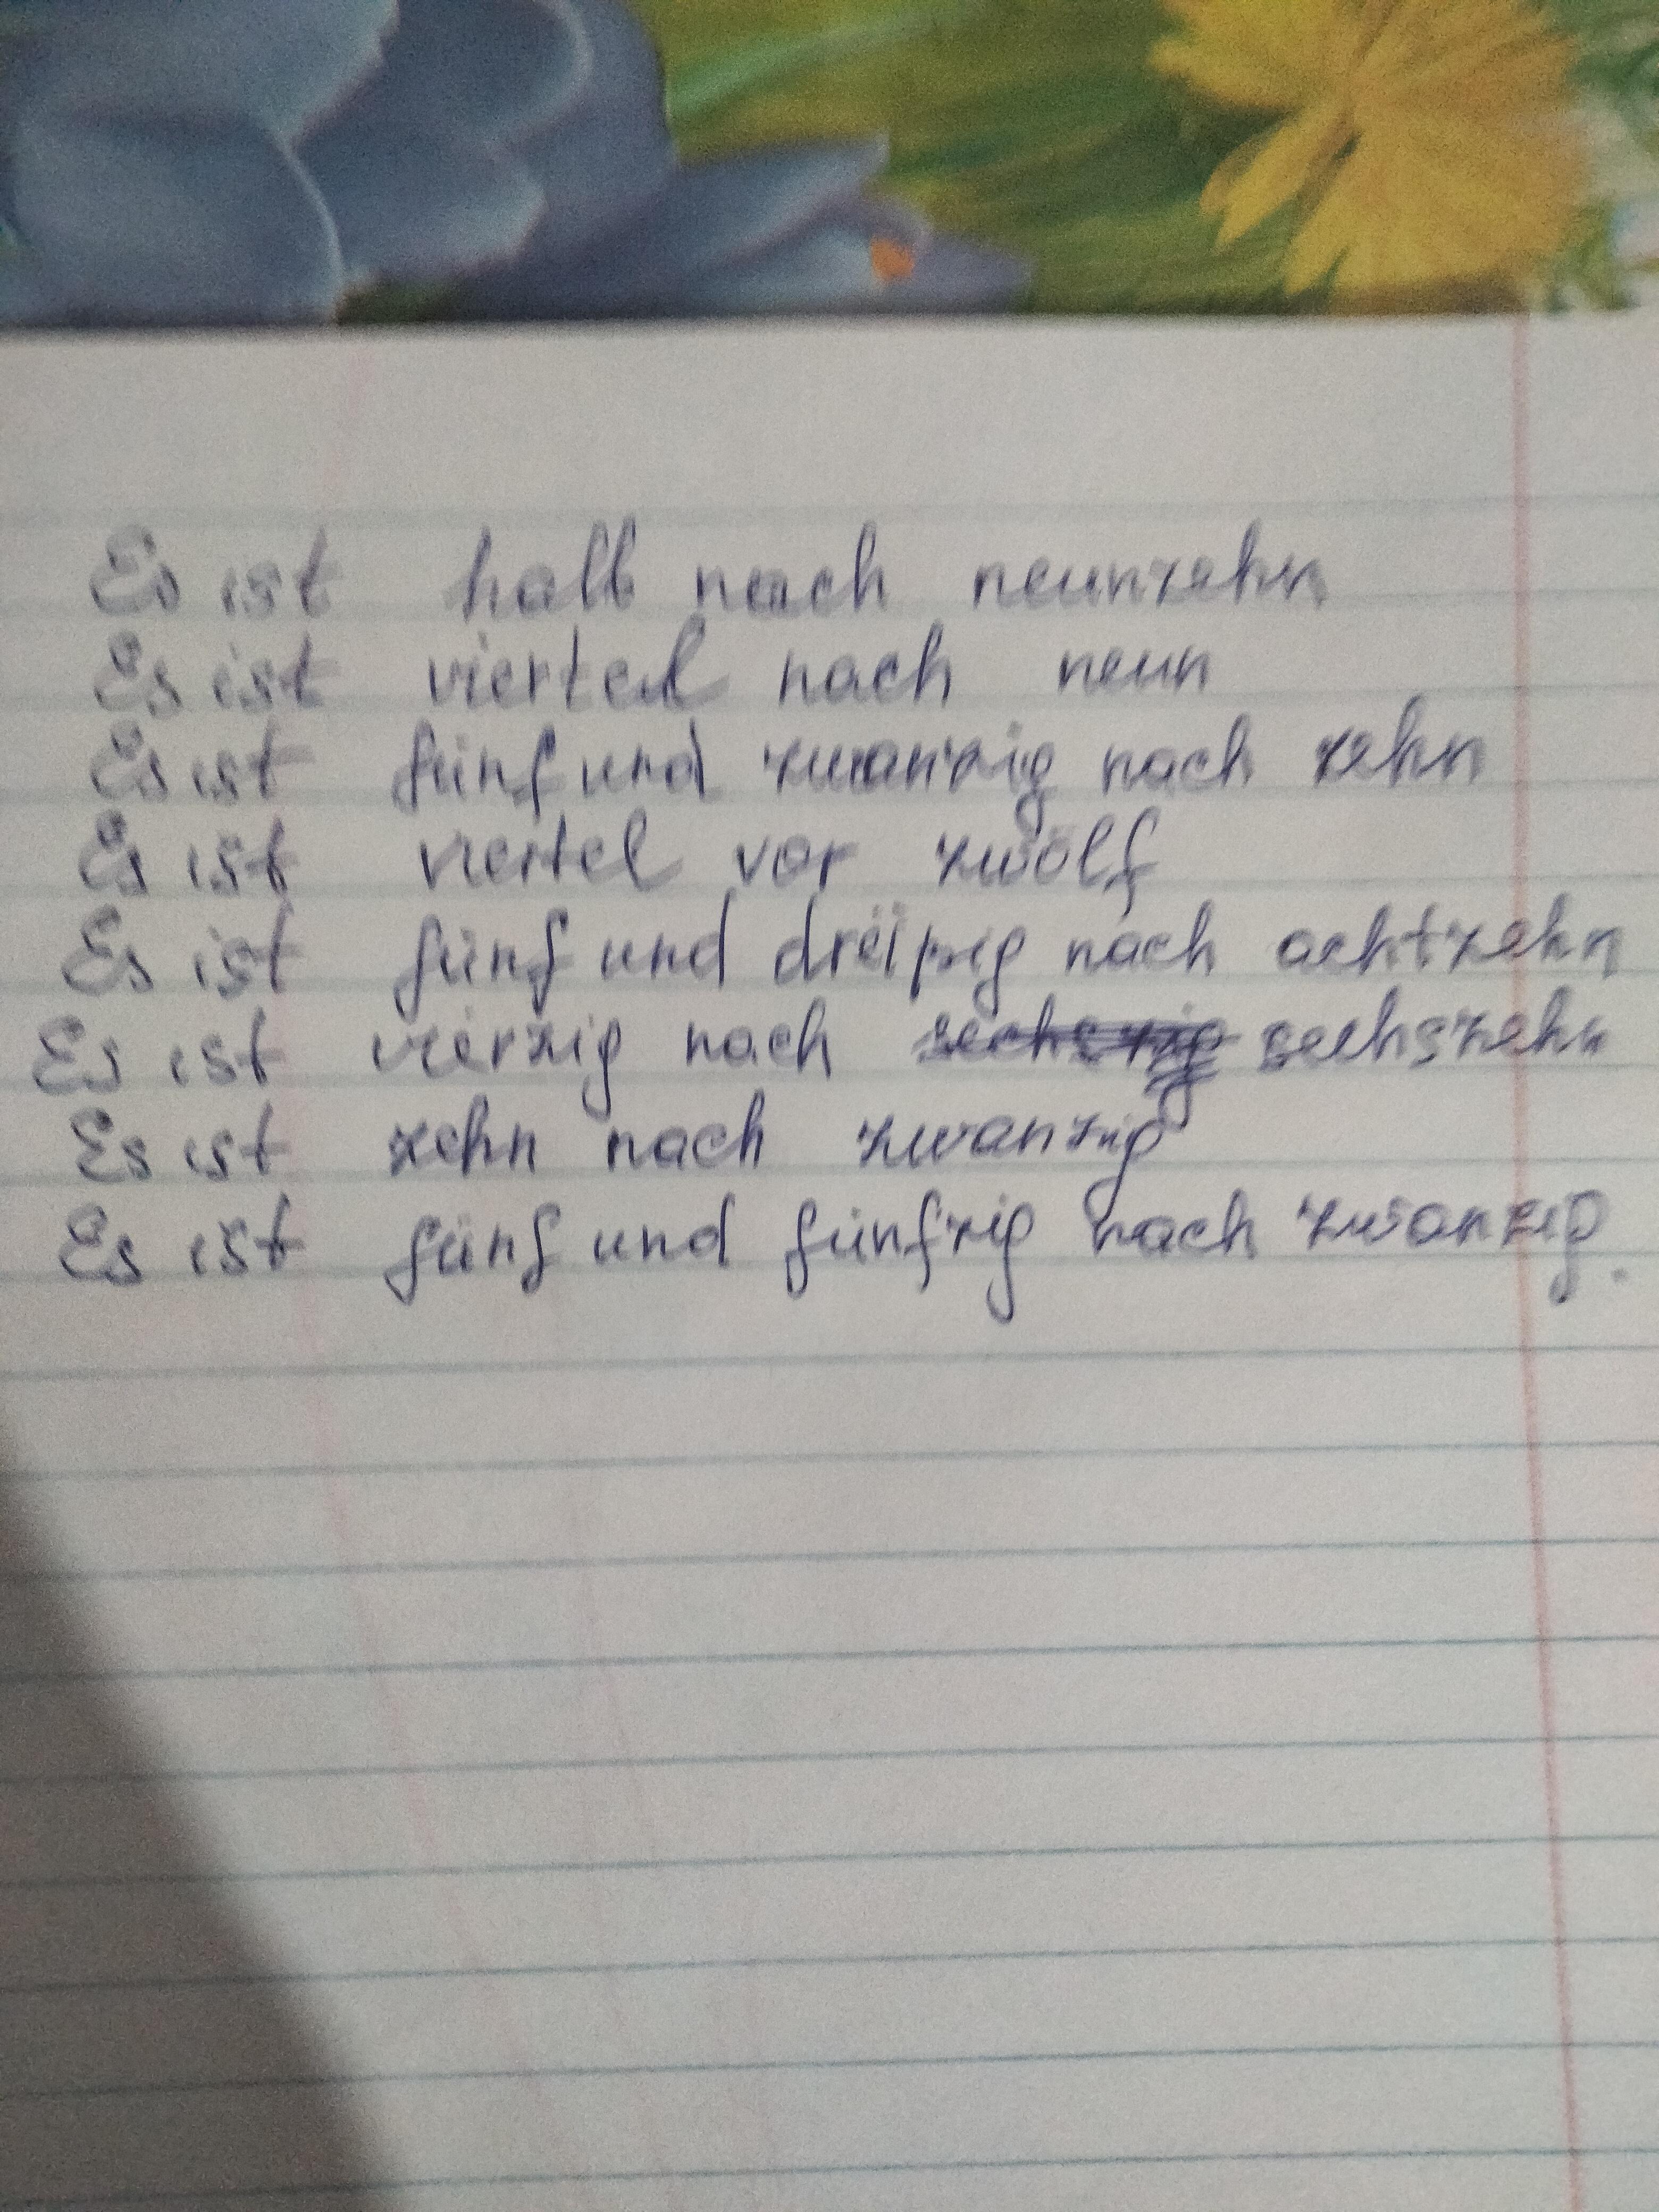 Es ist halb nach neunzehn
Es ist viertel nach neun
Es ist fünf und zwanzig nach zehn
Es ist viertel vor zwölf
Es ist fünf und dreißig nach achtzehn
Es ist vierzig nach sechszig sechszehn
Es ist zehn nach zwanzig
Es ist fünf und fünfzig nach zwanzig.